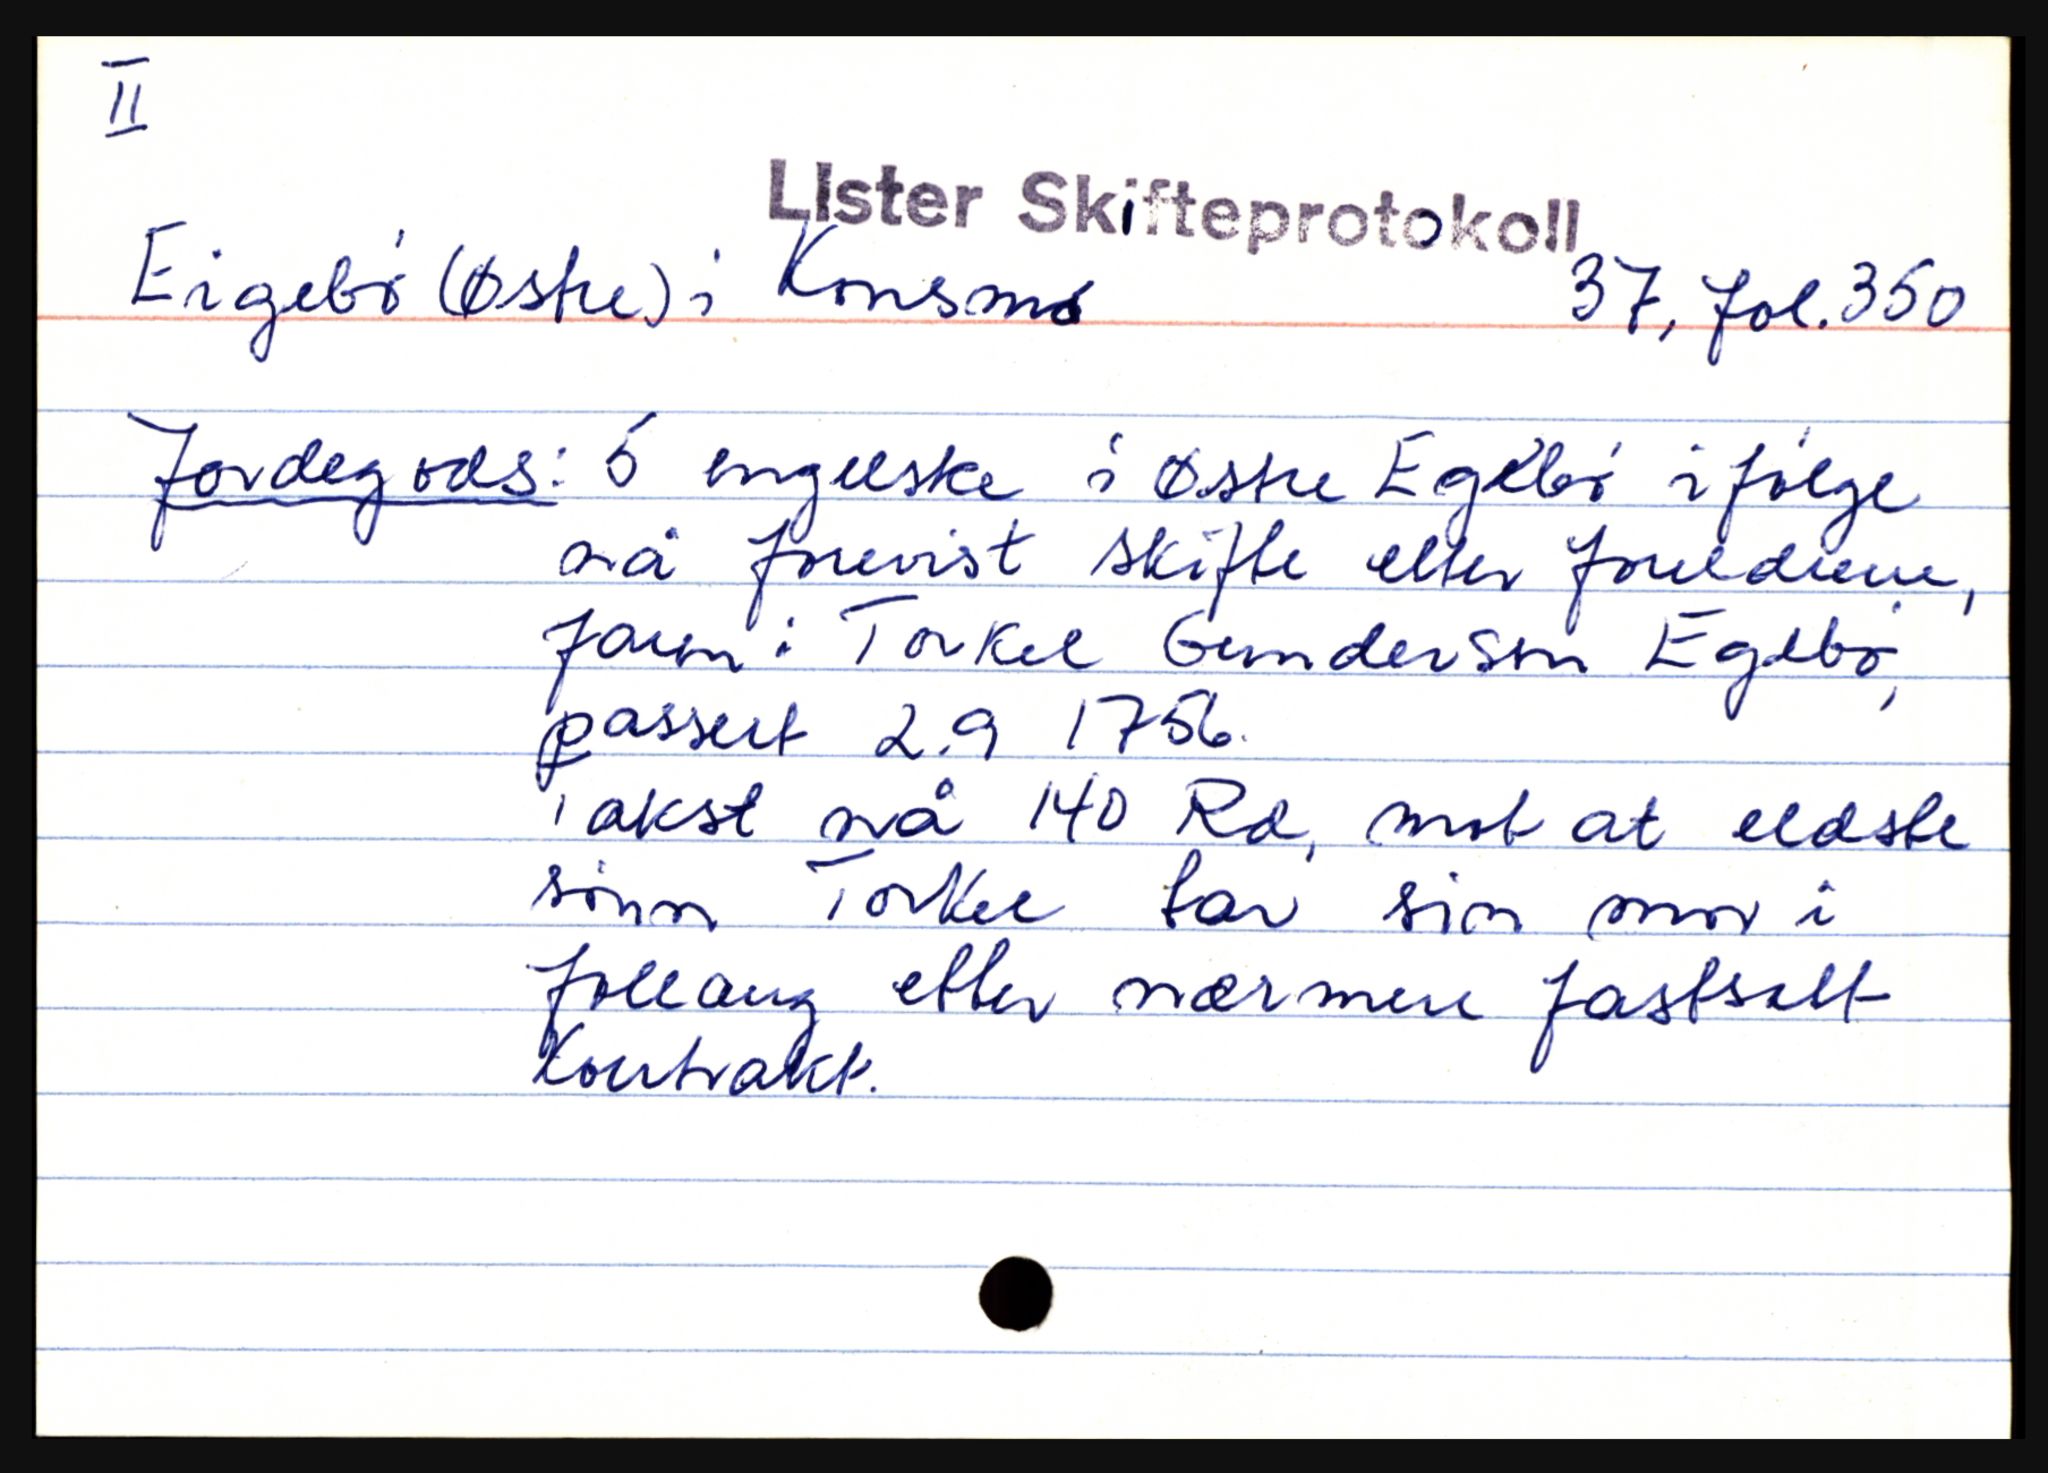 II
Lister Skifteprotokoll
Eigebø (Østre) i Konsmo 37, fol. 350
Jordegods: 5 engelske i Østre Egebø ifølge
nå forevist skifte etter foreldrene,
faren: Torkel Gunderson Egebø,
passert 2.9 1756.
Takst nå 140 Rd, mot at eldste
sønn Torkel tar sin mor i
follaug etter nærmere fastsatt
Kontrakt.